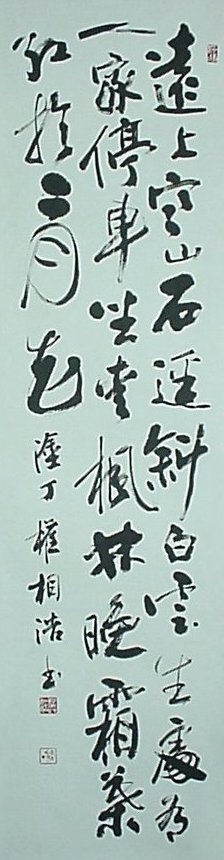 遠上寒山石逕斜白雲生處有
人家停車坐愛楓林晚霜葉
紅於二月花 塗丁權相浩書